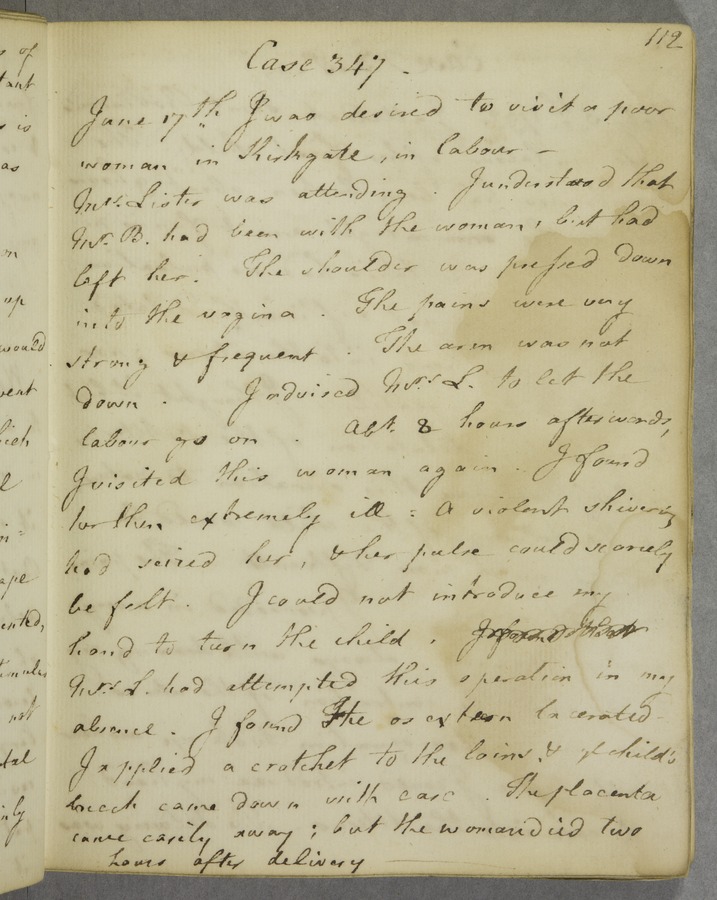 112
Case 347.
June 17th I was desired to visit a poor
woman in Kirkgate, in labour -
Mrs. Lister was attending. I understood that
Mr. B. had been with the woman, but had
left her. The shoulder was pressed down
into the vagina. The pains were very
strong & frequent. The arm was not
down. I advised Mrs L. to let the
labour go on. Abt. 8 hours afterwards,
I visited this woman again. I found
her then extremely ill: A violent shivering
had seized her, & her pulse could scarcely
be felt. I could not introduce my
hand to turn the child.
Mrs L. had attempted this operation in my
absence. I found the os extern lacerated -
I applied a crotchet to the loins, & ye child's
breech came down with ease. The placenta
came easily away; but the woman died two
hours after delivery